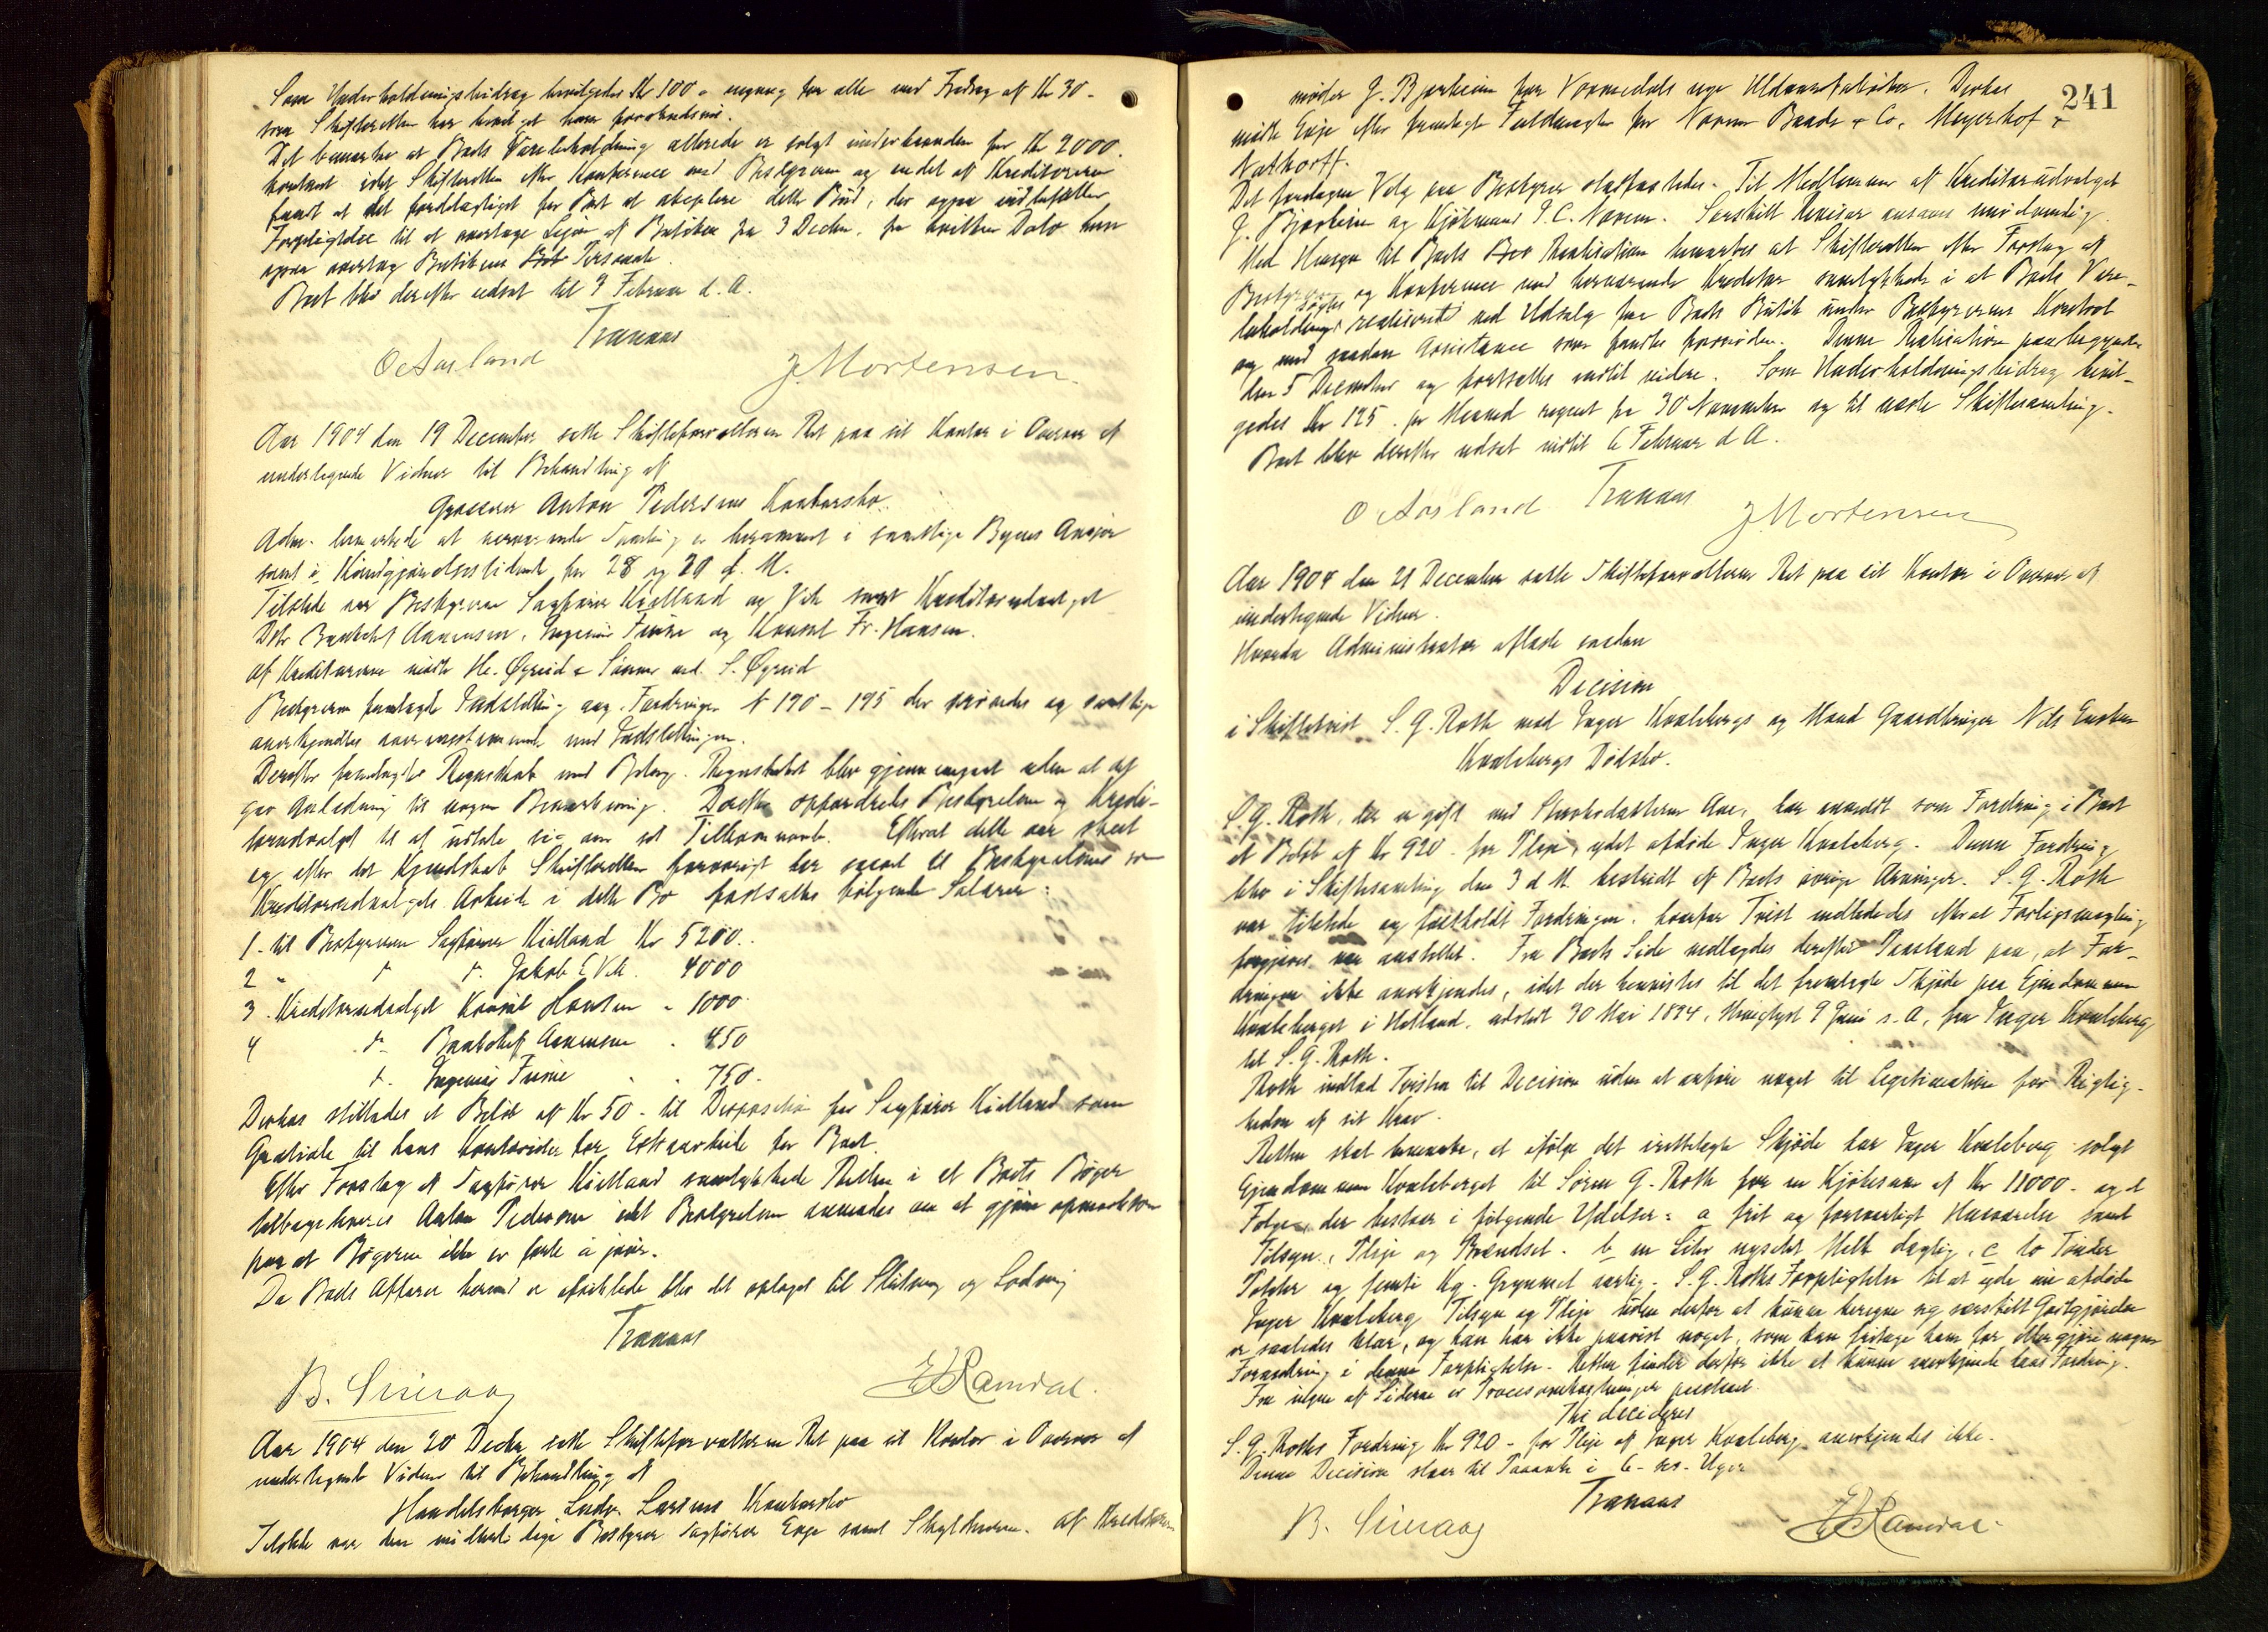 Som Underholdningsbidrag bevilgedes Kr 100 - engang for alle med Fradrag af Kr 30 -
som Skifteretten har bevilget ham forskudsvis.
Det bemærkes at Boets Varebeholdning allerede er solgt underhaanden for Kr 2000.
kontant idet Skifteretten efter Konference med Bestyreren og endel af Kreditorerne
fandt at det fordelagtigst for Boet at akceptere dette Bud, der ogsaa indbefatter
Forpligtelse til at overtage Lejen af Butiken fra 3 Decbr. fra hvilken Dato han
ogsaa overtog Butikens Personale.
Boet blev derefter udsat til 9 Februar d. A.
Tranaas
O Aasland J Mortensen.
Aar 1904 den 19 December satte Skifteforvalteren Ret paa sit Kontor i Overvær af
undertegnede Vidner til Behandling af
Grosserer Anton Pedersens Konkursbo.
Adm. bemærkede at nærværende Samling er berammet i samtlige Byens Aviser
samt i Kundgjørelsestidende for 28 og 29 f. M.
Tilstede var Bestyrerne Sagfører Kielland og Vik samt Kreditorudvalget
DHr Bankchef Aanensen, Ingeniør Furue og Konsul Fr. Hansen.
Af Kreditorerne mødte He. Øgreid & Sønner ved S. Øgreid
Bestyreren fremlagde Indstilling ang. Fordringer N 190 - 195 der prøvedes og samtlige
anerkjendtes overensstemmende med Indstillingen.
Derefter fremlagdes Regnskab med Bilag. Regnskabet blev gjennemgaaet uden at det
gav Anledning til nogen Bemærkning. Derefter opfordredes Bestyrelsen og Kredi-
torudvalget til at udtale sig om sit Tilkommende. Efterat dette var skeet
og efter det Kjendskab Skifteretten forøvrigt har saavel til Bestyrelsens som
Kreditorudvalgets Arbeide i dette Bo fastsattes følgende Salærer:
1. til Bestyreren Sagfører Kielland Kr 5200.
2 " d. d. Jakob E Vik. 4000
3. Kreditorudvalget Konsul Hansen " 1000.
4 d. Bankchef Aanensen " 450
d. Ingeniør Furue " " 750.
Derhos stilledes et Beløb af Kr 50 - til Disposition for Sagfører Kielland som
Gratiale til hans Kontorister for Extraarbeide for Boet.
Efter Forslag af Sagfører Kielland samtykkede Retten i at Boets Bøger
tilbageleveres Anton Pedersen idet Bestyrelsen anmodes om at gjøre opmærksom
paa at Bøgerne ikke er førte à jour.
Da Boets Affærer hermed er afviklede blev det optaget til Slutning og Lodning
Tranaas
B. Siuraas E B Ramdal.
Aar 1904 den 20 Decbr satte Skifteforvalteren Ret paa sit Kontor i Overvær af
undertegnede Vidner til Behandling af
Handelsborger Ludv. Larsens Konkursbo
Tilstede var den midlertidige Bestyrer Sagfører Enge samt Skyldneren. Af Kreditorer
241
møder J. Bjørheim for Varmedals nye Uldvarefabriker. Derhos
mødte Enje efter fremlagte Fuldmagter for Naren Baade & Co, Meyerhof &
Nathorff.
Det foretagne Valg paa Bestyrer stadfæstedes. Til Medlemmer af Kreditorudvalget
J. Bjørheim og Kjøbmand P. C. Naven. Særskilt Revisor ansaaes unødvendig.
Med Hensyn til Boets Realisation bemærkes at Skifteretten efter Forslag af
Bestyreren og Konference med herværende Kreditor samtykkede i at Boets Vare-
beholdning søges realiseret ved Udsalg fra Boets Butik under Bestyrerens Kontrol
og med saadan Assistance som fandtes fornøden. Denne Realisation paabegyndtes
den 5 December og fortsættes indtil videre. Som Underholdningsbidrag bevil-
gedes Kr 125. pr Maaned regnet fra 30 November og til næste Skiftesamling.
Boet blev derefter udsat indtil 6 Februar d A.
Tranaas
O Aasland J Mortensen
Aar 1904 den 21 December satte Skifteforvalteren Ret paa sit Kontor i Overvær af
undertegnede Vidner.
Hvorda Administrator aflagde saadan
Decision
i Skiftetvist S. G. Roth mod Inger Kvalebergs og Mand Gaardbruger Nils Knutsen
Kvalebergs Dødsbo.
S. G. Roth, der er gift med Stervbodatteren Ane, har anmeldt som Fordring i Boet
et Beløb af Kr 920 - for Pleje, ydet afdøde Inger Kvaleberg. Denne Fordring
blev i Skiftesamling den 3 d M. bestridt af Boets øvrige Arvinger. S. G. Roth
var tilstede og fastholdt Fordringen, hvorfor Tvist indlededes efterat Forligsmægling
forgjæves var anstillet. Fra Boets Side nedlagdes derefter Paastand paa, at For-
dringen ikke anerkjendes, idet der henvistes til det fremlagte Skjøde paa Ejendommen
Kvaleberget i Hetland, udstedt 30 Mai 1894, thinglyst 9 Juni s. A. fra Inger Kvaleberg
til S. G. Roth.
Roth indlod Tvisten til Decision uden at anføre noget til Legitimation for Rigtig-
heden af sit Krav.
Retten skal bemærke, at ifølge det irettelagte Skjøde har Inger Kvaleberg solgt
Ejendommen Kvaleberget til Søren G. Roth for en Kjøbesum af Kr 11000 - og et
Følge, der bestaar i følgende Ydelser: a frit og forsvarligt Husværelse samt
Tilsyn, Pleje og Brændsel. b en Liter nysilet Melk daglig, c to Tønder
Poteter og femti Kg. Grynmel aarlig. S. G. Roths Forpligtelse til at yde nu afdøde
Inger Kvaleberg Tilsyn og Pleje uden derfor at kunne beregne sig særskilt Godtgjørelse
er saaledes klar, og han har ikke paavist noget, som kan fritage ham for eller gjøre nogen
Forandring i denne Forpligtelse. Retten finder derfor ikke at kunne anerkjende hans Fordring.
Fra ingen af Siderne er Procesomkostninger paastaaet.
Thi decideres
S. G. Roths Fordring Kr 920 - for Pleje af Inger Kvaleberg anerkjendes ikke.
Denne Decision staar til Paaanke i 6 - sex - Uger
Tranaas
B. Siuraas E B Ramdal.